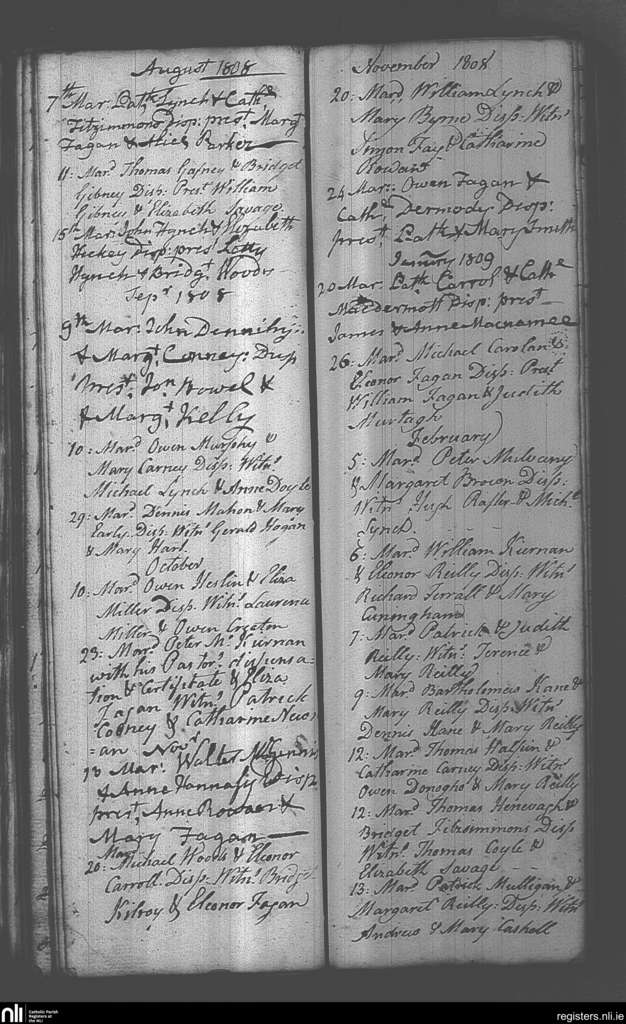 August 1808
7th Mar: Patk Lynch & Cathe
Fitzimmons Disp: prest. Margt
Fagan & Alice Parker
11: Mard Thomas Gafney & Bridget
Gibney Disp: Prest William
Gibney & Elizabeth Savage
15th Mar: John Lynch & Elizabeth
Hickey Disp: prest
Lynch & Bridgt. Woods
Sepr 1808
9th Mar: John Dennihy:
& Margt. Conney: Disp
Prest. Jon. Howel &
& Margt. Kelly
10: Mard Owen Murphy &
Mary Carney Disp: Witns
Michael Lynch & Anne Doyle
29: Mard Dennis Mahon & Mary
Early. Disp: Witns Gerald Hogan
& Mary Hart
October
10: Mard Owen Heslin & Eliza
Miller Disp. Witns. Laurence
Miller & Owen
23: Mard Peter Mc. Kiernan
with his Pastor's dispensa-
tion & Certificate & Eliza
Fagan Witns Patrick
Cooney & Catharine Noon
=an Novr.
13 Mar: Walter McGinnis
& Anne Hannafy Disp
prest. Anne &
Mary Fagan
Mard
20: Michael Woods & Eleonor
Carroll. Disp: Witns. Bridgt
Kilroy & Eleonor Fagan
November 1808
20: Mard William Lynch &
Mary Byrne Disp: Witns
Simon Fay & Catharine
Rowan
24 Mar: Owen Fagan &
Cathe. Dermody Disp:
prest. Patk & Mary Smith
January 1809
20 Mar. Patk Carrol & Cathe
Macdermott Disp: prest
James & Anne Macnamee
26: Mard Michael Carolan &
Eleonor Fagan Disp: Prest
William Fagan & Judith
Murtagh
February
5: Mard Peter Mulvany
& Margaret Brown Disp:
Witns Hugh & Michl.
Lynch
6: Mard William Kiernan
& Eleonor Reilly Disp: Witns
Richard Ferrall & Mary
Cuningham
7: Mard Patrick & Judith
Reilly: Witns. Terence &
Mary Reilly
9: Mard Bartholomew Kane &
Mary Reilly Disp: Witns
Dennis Kane & Mary Reilly
12: Mard Thomas Halpin &
Catharine Carney Disp: Witns
Owen Donogho & Mary Reilly
12: Mard Thomas Henewagh &
Bridget Fitzsimmons Disp
Witns. Thomas Coyle &
Elizabeth Savage
13: Mard Patrick Mulligan &
Margaret Reilly: Disp: Witns
Andrew & Mary Cashell
nli
Catholic Parish
Registers at
the NLI
registers.nli.ie